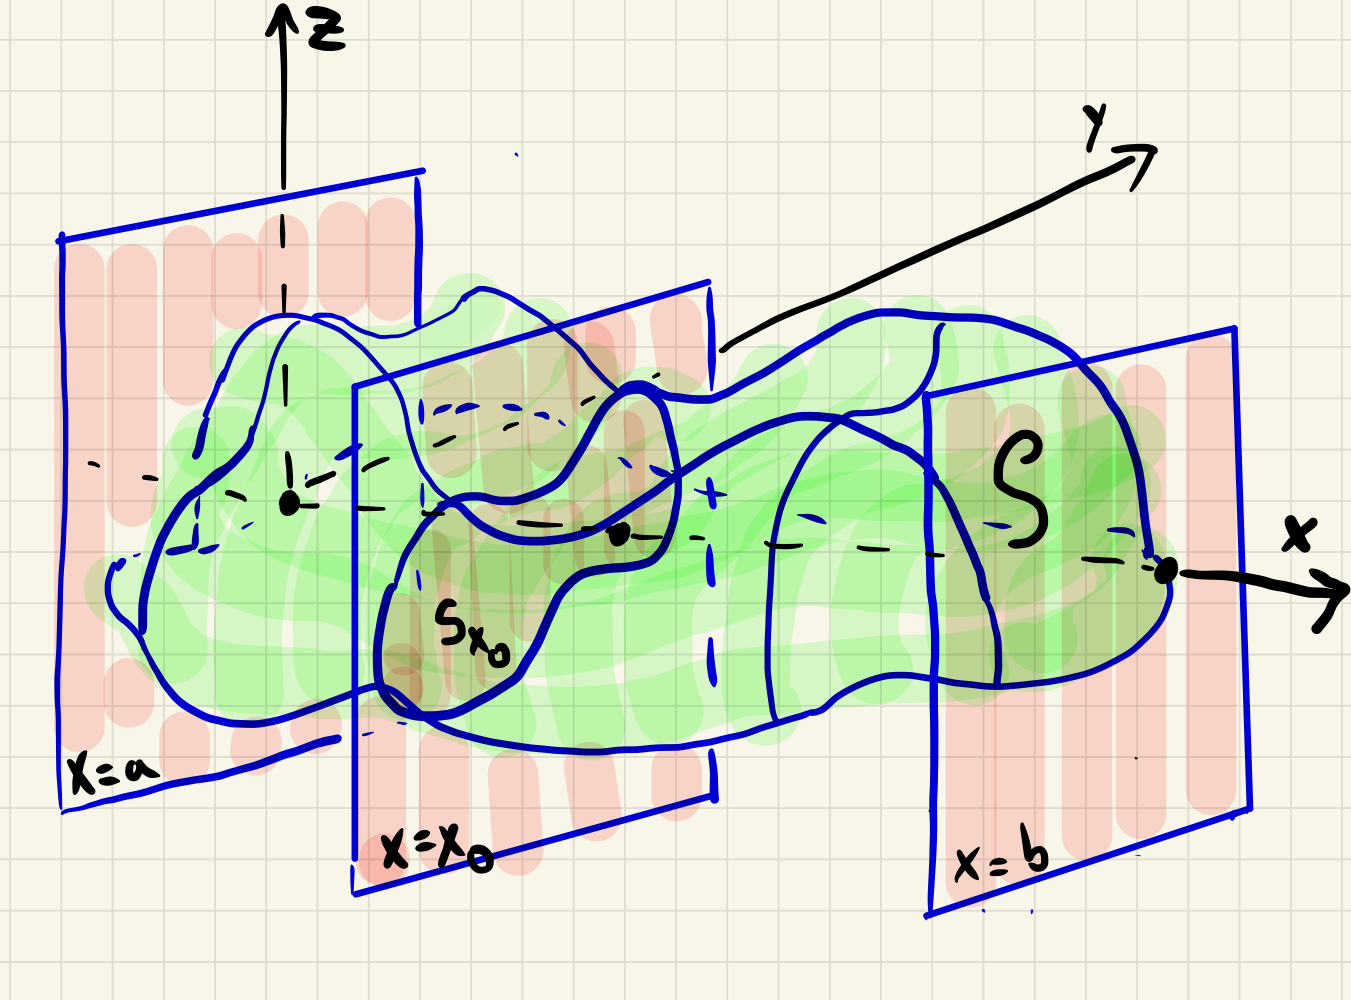 Z
Y
S
X
S_{X_0}
X=a
X=X_0
X=b